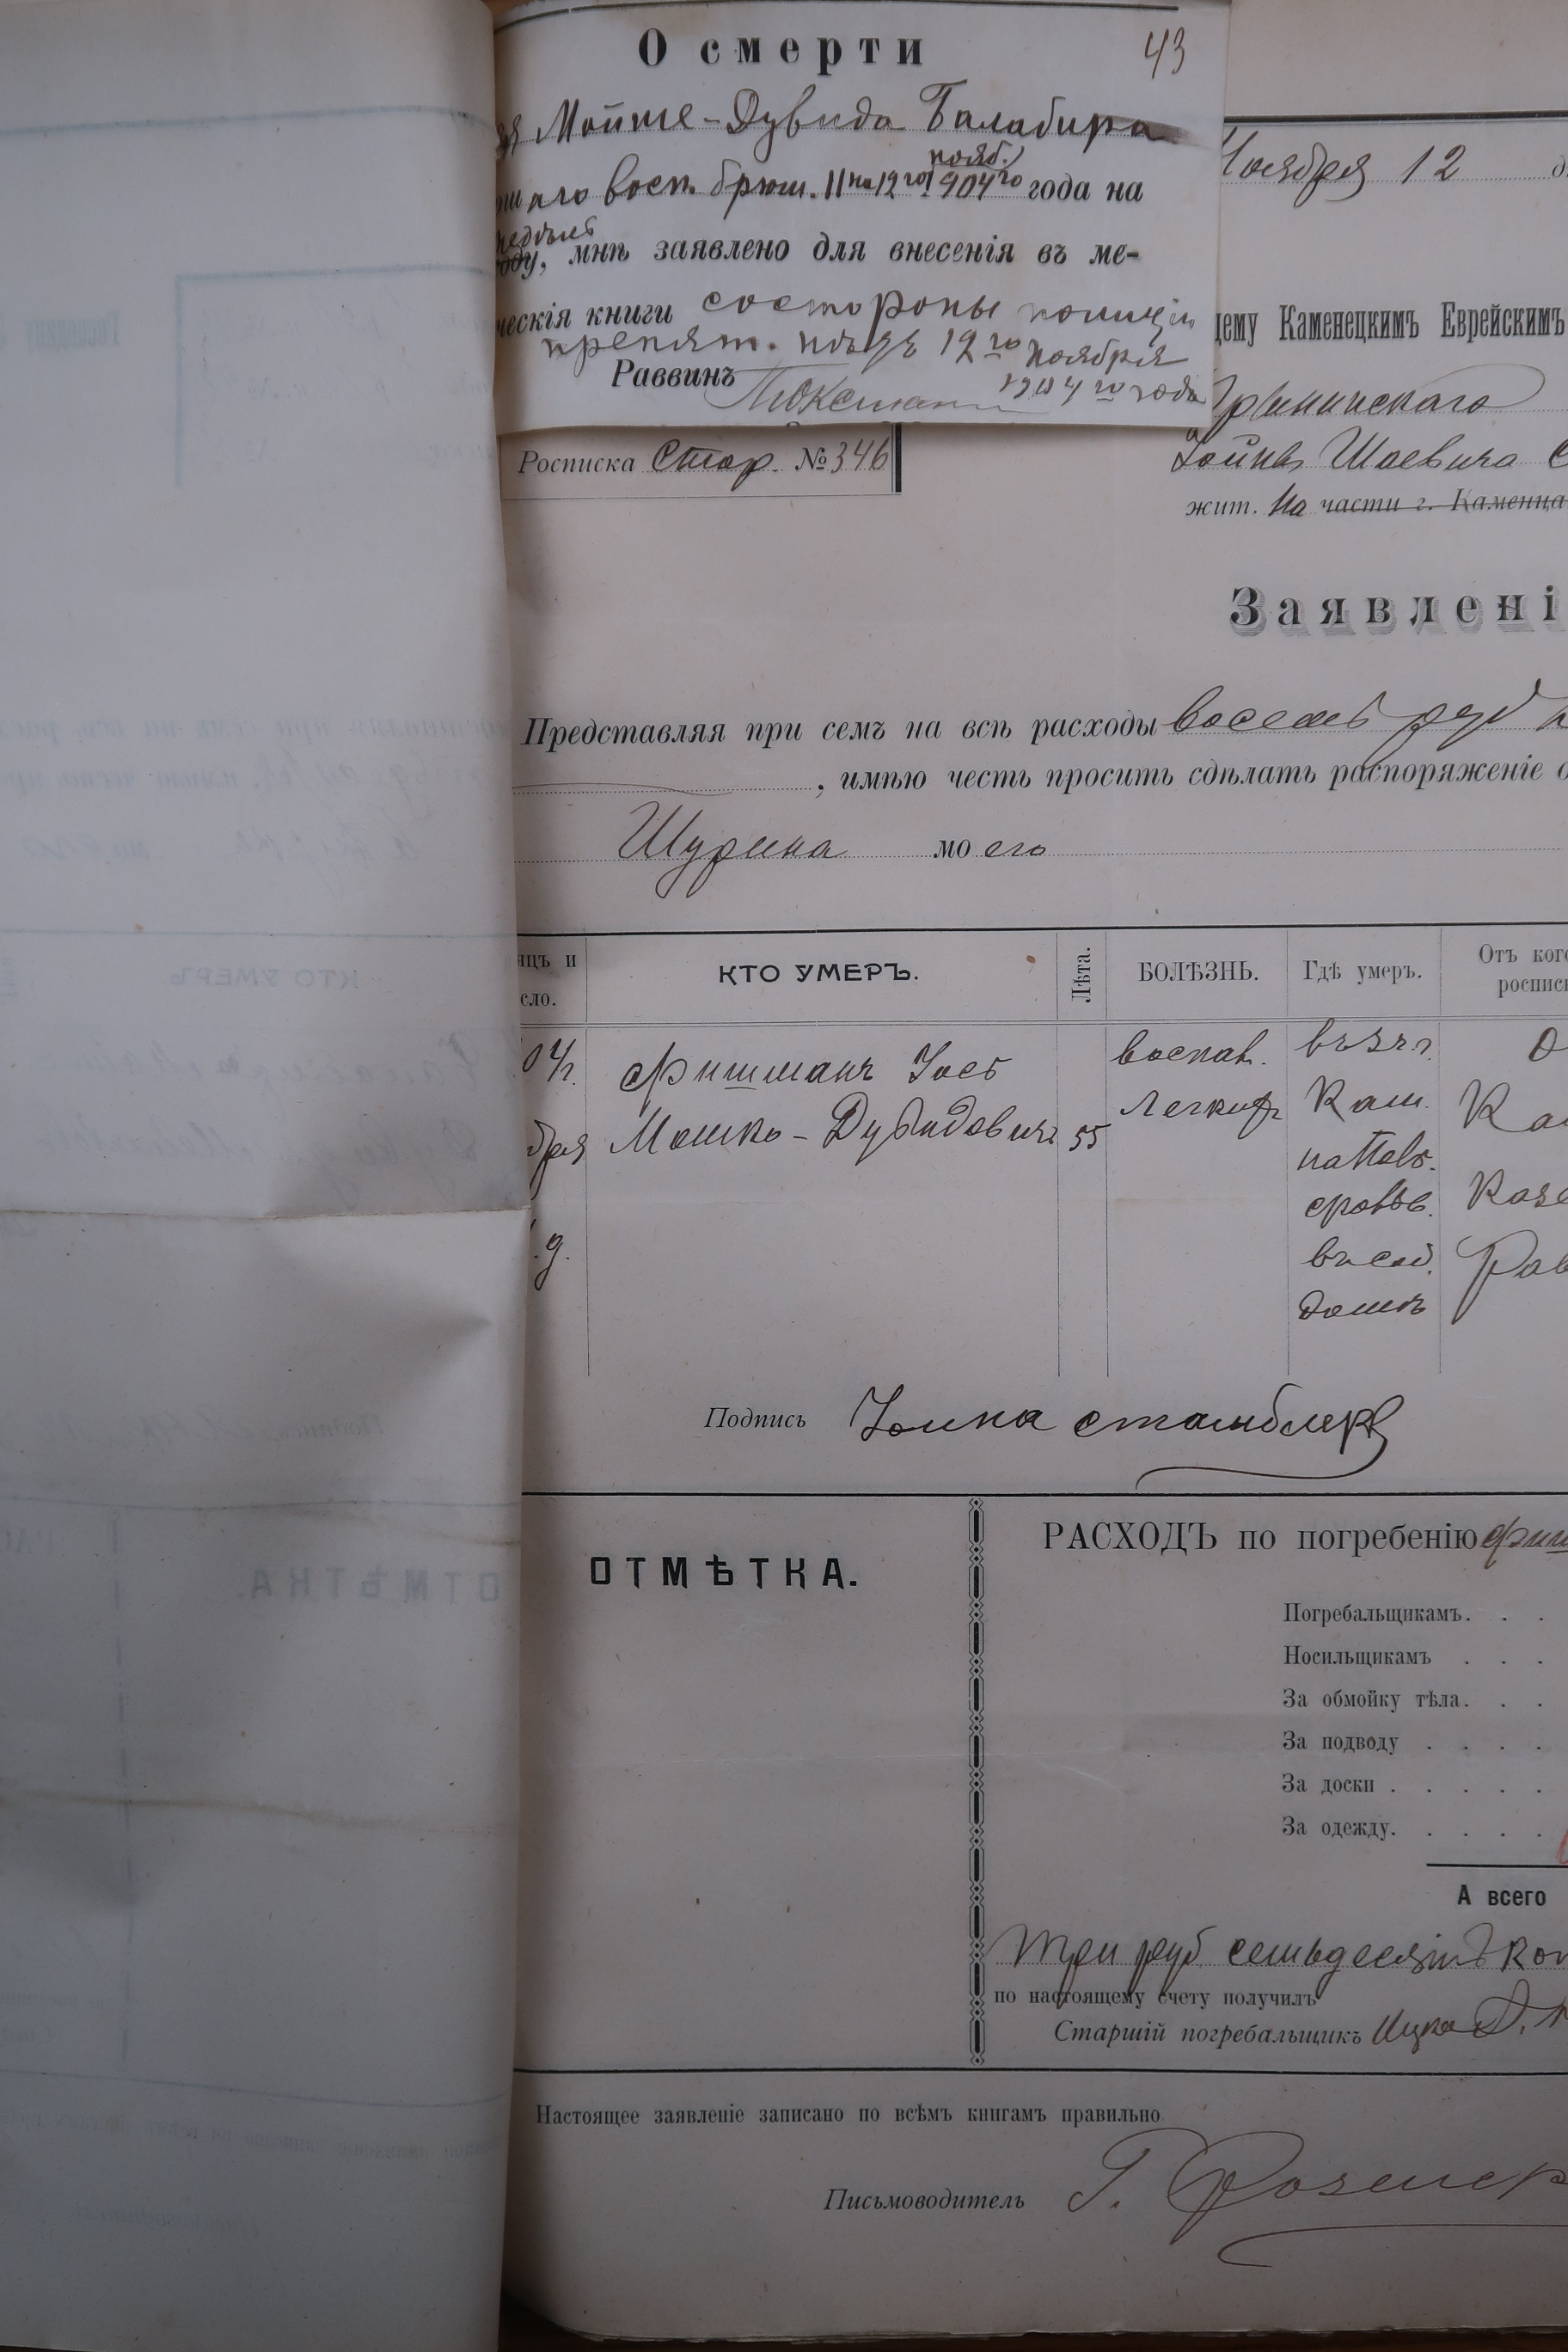 О смерти 43
Мойше-Дувида Балабира
нояб.
аго восп. брюш. 11 на 12 го 1904 го года на
недѣлѣ
оду, мнѣ заявлено для внесенія въ ме-
ческія книги со стороны полиціи
препят. нѣтъ 12 го ноября
1904 го года
Раввинъ
Росписка Стор. № 346
Ноября 12
щему Каменецкимъ Еврейскимъ
Іойны Шаевича С
жит. На части г. Каменца
Заявлені
Представляя при семъ на всѣ расходы восемь руб
, имѣю честь просить сдѣлать распоряженіе о
Шурина моего
яцъ и
сло.
КТО УМЕРЪ.
Лѣта.
БОЛѢЗНЬ.
Гдѣ умеръ.
Отъ кого
росписк
04 г.
бря
д.
Фишманъ Іось
Мошко-Дувидовичъ
55
воспал.
легкихъ
въ
Кам.
домѣ
О
Ка
Казе
Рав
Подпись Іойна Стамблеръ
ОТМѢТКА.
РАСХОДЪ по погребенію Фиш
Погребальщикамъ. . .
Носильщикамъ . . .
За обмойку тѣла. . .
За подводу . . . .
За доски . . . . .
За одежду. . . . .
А всего
Три руб семьдесятъ коп
по настоящему счету получилъ
Старшій погребальщикъ Ицко
Настоящее заявленіе записано по всѣмъ книгамъ правильно
Письмоводитель Г. Розенер